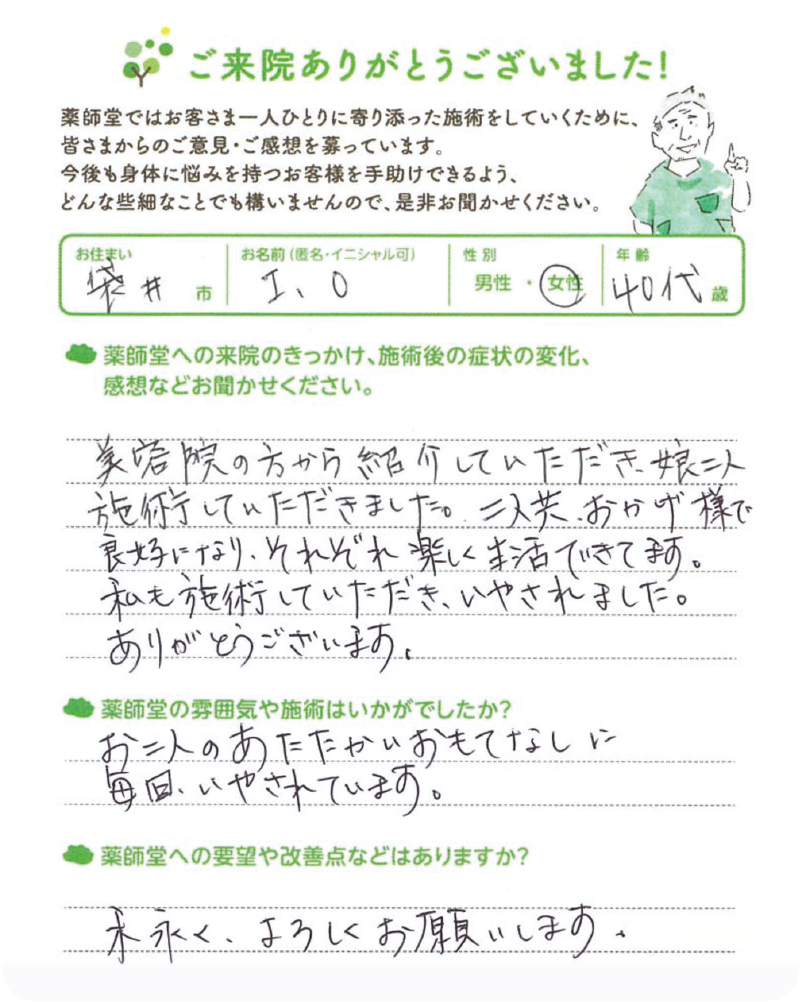 ご来院ありがとうございました!
薬師堂ではお客さま一人ひとりに寄り添った施術をしていくために、
皆さまからのご意見・ご感想を募っています。
今後も身体に悩みを持つお客様を手助けできるよう、
どんな些細なことでも構いませんので、是非お聞かせください。
お住まい お名前(匿名・イニシャル可) 性別 年齢
袋井市 I、O 男性・女性 40代歳
薬師堂への来院のきっかけ、施術後の症状の変化、
感想などお聞かせください。
美容院の方から紹介していただき、娘二人
施術していただきました。二人共、おかげ様で
良好になり、それぞれ楽しく生活できてます。
私も施術していただき、いやされました。
ありがとうございます。
薬師堂の雰囲気や施術はいかがでしたか?
お二人のあたたかいおもてなしに
毎回、いやされています。
薬師堂への要望や改善点などはありますか?
末永く、よろしくお願いします。